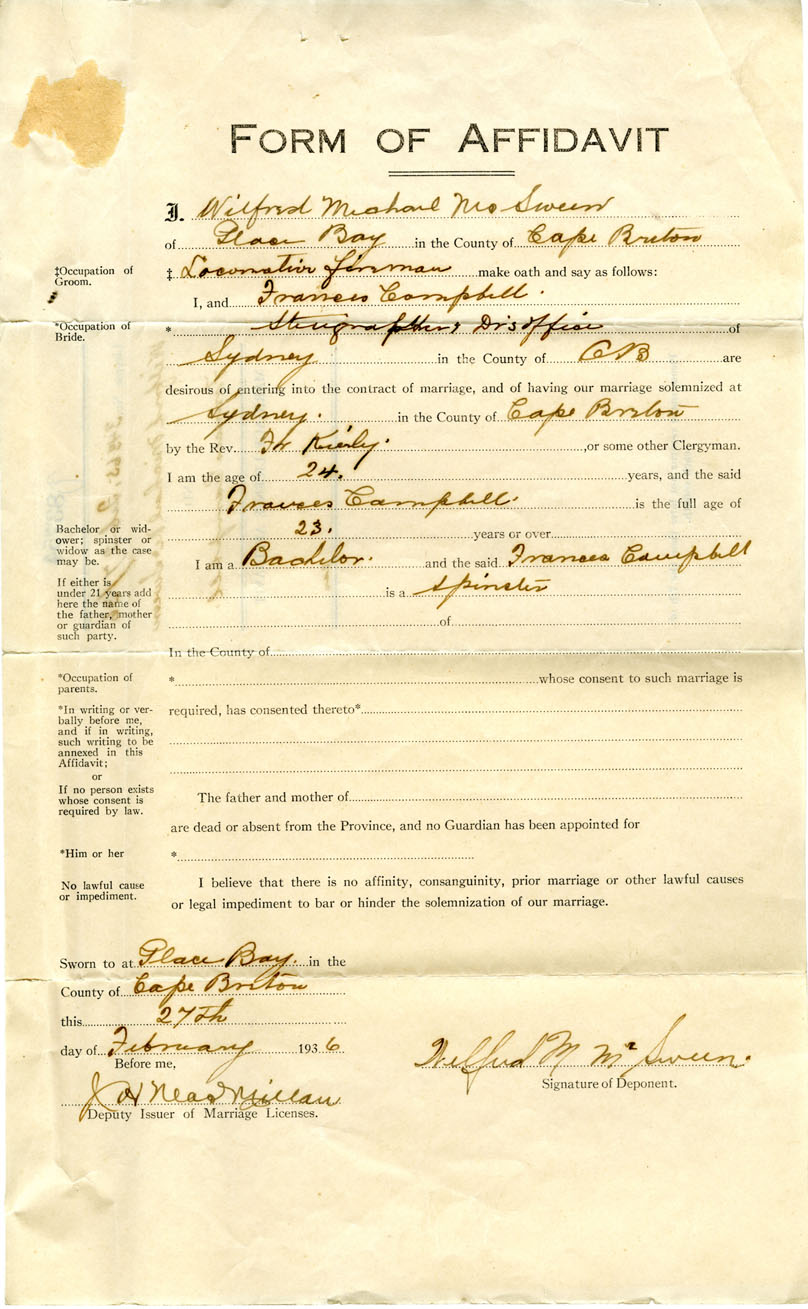 FORM OF AFFIDAVIT
I, Wilfred Michael Mc Sween
of Glace Bay in the County of Cape Breton
‡Occupation of Groom.
‡ Locomotive fireman make oath and say as follows:
I, and Frances Campbell
*Occupation of Bride.
* Stenographer Dr's office of
Sydney in the County of CB are
desirous of entering into the contract of marriage, and of having our marriage solemnized at
Sydney. in the County of Cape Breton
by the Rev. Fr Kiely. ,or some other Clergyman.
I am the age of 24. years, and the said
Frances Campbell. is the full age of
23. years or over
Bachelor or wid-
ower; spinster or
widow as the case
may be.
I am a Bachelor. and the said Frances Campbell
is a spinster
If either is
under 21 years add
here the name of
the father, mother
or guardian of
such party.
of
In the County of
*Occupation of
parents.
* whose consent to such marriage is
*In writing or ver-
bally before me,
and if in writing,
such writing to be
annexed in this
Affidavit;
or
If no person exists
whose consent is
required by law.
required, has consented thereto*
The father and mother of
are dead or absent from the Province, and no Guardian has been appointed for
*Him or her
*
No lawful cause
or impediment.
I believe that there is no affinity, consanguinity, prior marriage or other lawful causes
or legal impediment to bar or hinder the solemnization of our marriage.
Sworn to at Glace Bay. in the
County of Cape Breton
this 27th
day of February 1936
Before me,
J H MacMillan
Deputy Issuer of Marriage Licenses.
Wilfred M McSween.
Signature of Deponent.